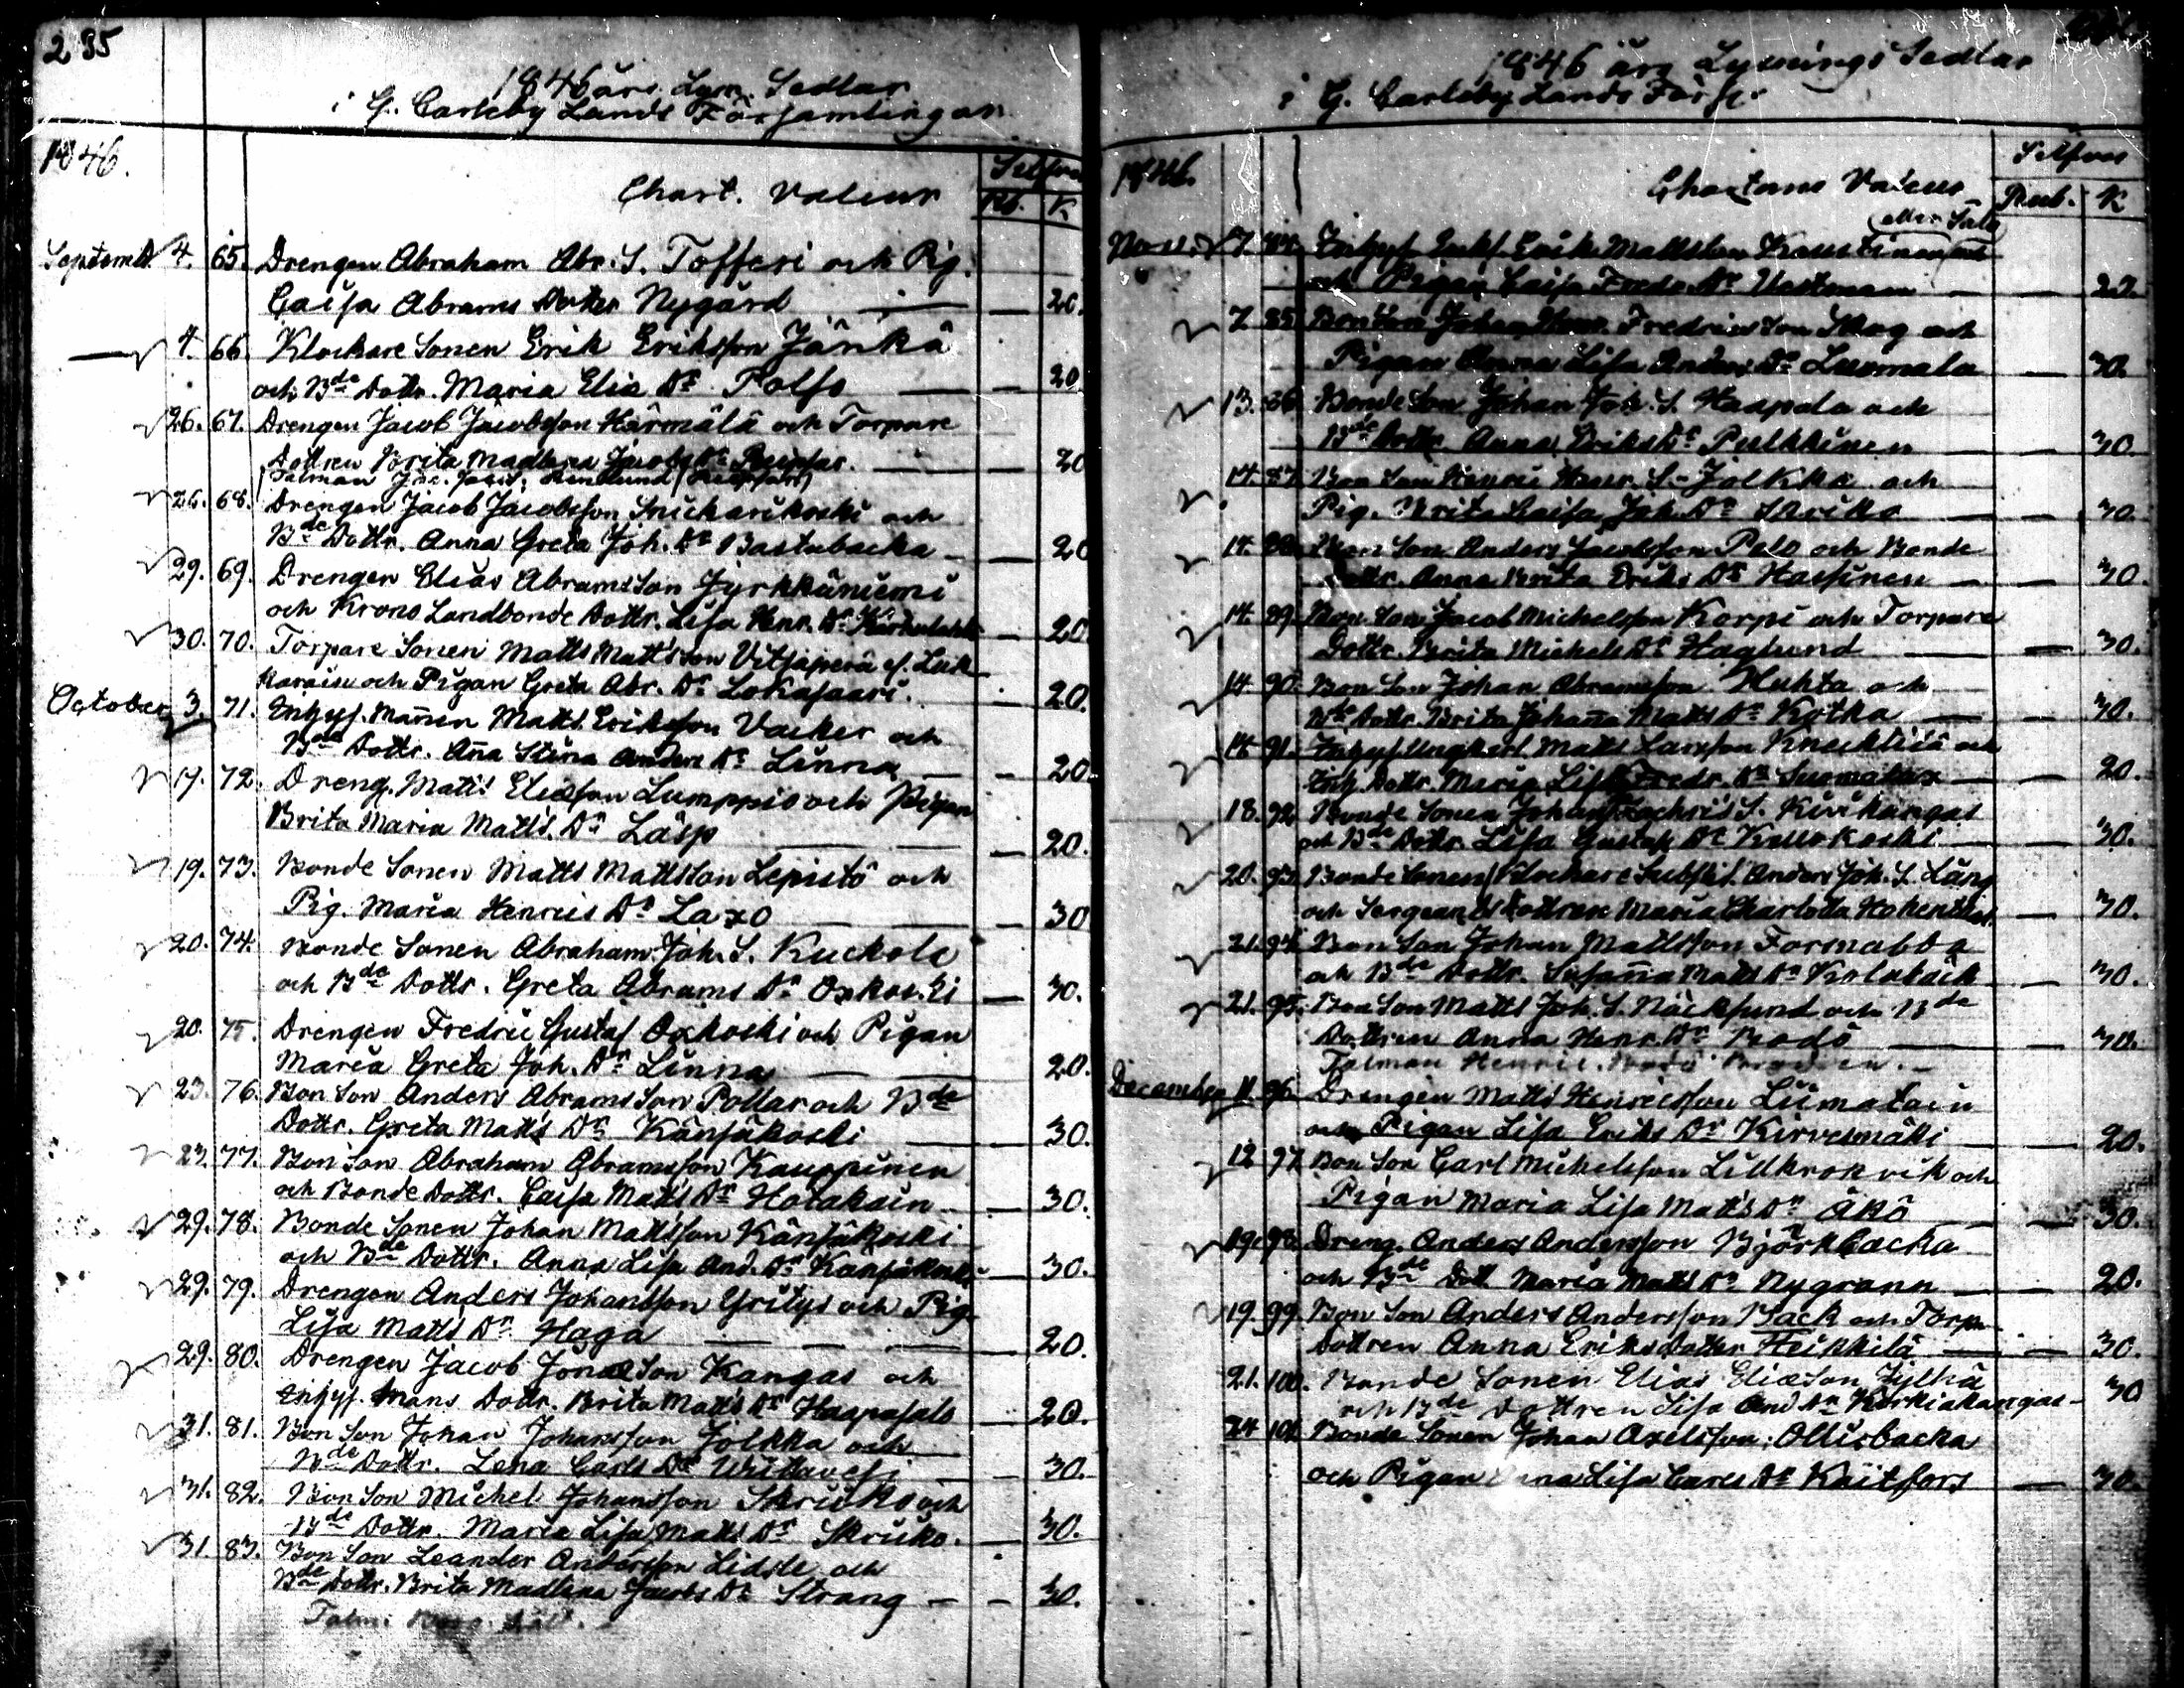 285
1846 års Lysn. Sedlar
i G. Carleby Lands Församlingar
1846.
Chart. Valeur
Silfver
Rb. K
Septemb. 4. 65. Drengen Abraham Abr. S. Tofferi och Pig.
Caisa Abrams Dotter Nygård — 20.
4. 66. Klockare Sonen Erik Eriksson Jänkä
och Bde Dottr. Maria Elia Dr Polso — 20
26. 67. Drengen Jacob Jacobsson Härmälä och Torpare
Dottren Brita Madlena Jacobs Dr — 20
Talman Jac. Jacobs.
26. 68. Drengen Jacob Jacobsson Snickarikoski och
Bde Dottr. Anna Greta Joh. Dr Bastubacka — 20
29. 69. Drengen Elias Abramsson Jyrkkäniemi
och Krono Landbonde Dottr. Lisa Henr. Dr — 20
30. 70. Torpare Sonen Matts Mattsson Vitsaperä el. Leik
karain och Pigan Greta Abr. Dr Lokasaari. 20.
October 3. 71. Inhys. Mannen Matts Eriksson Vacker och
Bde Dottr. Aña Stina Anders Dr Linna — 20.
19. 72. Dreng. Matts Eliasson Lumppio och Pigan
Brita Maria Matts. Dr Läsp — 20.
19. 73. Bonde Sonen Matts Mattsson Lepistö och
Pig. Maria Henrics Dr Laxo — 30
20. 74. Bonde Sonen Abraham Joh. S. Kuckola
och Bde Dottr. Greta Abrams Dr Oxkoski — 30.
20. 75. Drengen Fredric Gustaf Oxkoski och Pigan
Maria Greta Joh. Dr Linna — 20.
23. 76. Bon Son Anders Abramsson Pollar och Bde
Dottr. Greta Matts Dr Känsäkoski — 30.
23. 77. Bon Son Abraham Abramsson Kauppinen
och Bonde Dottr. Caisa Matts Dr Hotakain — 30.
29. 78. Bonde Sonen Johan Mattsson Känsäkoski
och Bde Dottr. Anna Lisa And. Dr Känsäkoski — 30.
29. 79. Drengen Anders Johansson Yritys och Pig.
Lisa Matts Dr Haga — 20.
29. 80. Drengen Jacob Jonasson Kangas och
Inhys. Mans Dottr. Brita Matts Dr Haapasalo — 20.
31. 81. Bon Son Johan Johansson Jolkka och
Bde Dottr. Lena Carls Dr Wiittavesi — 30.
31. 82. Bon Son Michel Johansson Skriiko och
Bde Dottr. Maria Lisa Matts Dr Skriiko. 30.
31. 83. Bon Son Leander Andersson Lidste och
Bde Dottr. Brita Madlena Jacobs Dr Strang — 30.
Talm:
1846 års Lysnings Sedlar
i G. Carleby Lands Förs.
1846.
Chartans Valeur
Silfver
Rub. K
Nov. 7. 84. Erik Mattsson
och Pigan Caisa Fredr. Dr
7 85. Bon Son Johan Fredricsson Skog och
Pigan Anna Lisa Anders Dr Luomala — 30.
13. 86 Bonde Son Johan Joh. S. Haapala och
Bde Dottr. Anna Eriks Dr Pulkkinen 30.
14. 87. Bon Son Henric Henr. S. Jolkka och
Pig. Brita Caisa Joh. Dr Skriiko — 30.
14. 88. Bon Son Anders Jacobsson Palo och Bonde
Dottr. Anna Brita Eriks Dr Hassinen — 30.
14. 89. Bon Son Jacob Michelsson Korpi och Torpare
Dottr. Brita Michels Dr Haglund — 30.
14 90. Bon Son Johan Abramsson Huhta och
Bde Dottr. Brita Johaña Matts Dr Kotka — 30.
14. 91. Inhys Ungkarl Matts Larsson och
Inh. Dottr. Maria Lisa Fredr. Dr — 20.
18. 92. Bonde Sonen Johan Zachris S. Kivikangas
och Bde Dottr. Lisa Gustafs Dr — 30.
20. 93. Bonde Sonen (Klockare Substit. Anders Joh. S. Läng
och Sergeants Dottren Maria Charlotta — 30.
21. 94. Bon Son Johan Mattsson
och Bde Dottr. Susaña Matts Dr — 30.
21. 95. Bon Son Matts Joh. S. Näcksund och Bde
Dottren Anna Henr. Dr Brodö — 30.
Talman Henric
December 11. 96. Drengen Matts Henricsson Liimatain
och Pigan Lisa Eriks Dr Kirvesmäki 20.
12 97. Bon Son Carl Michelsson Lillkrokvik och
Pigan Maria Lisa Matts Dr Åkö — 30.
19. 98. Dreng. Anders Andersson Björkbacka
och Bde Dott Maria Matts Dr Nygrann — 20.
19. 99. Bon Son Anders Andersson Back och Torp.
Dottren Anna Eriks Dotter Heikkilä — 30.
21. 100. Bonde Sonen Elias Eliasson Jylhä
och Bde Dottren Lisa And Dr Korkiakangas — 30
24 101. Bonde Sonen Johan Axelsson Ollisbacka
och Pigan Lisa Carls Dr Kaitfors — 30.